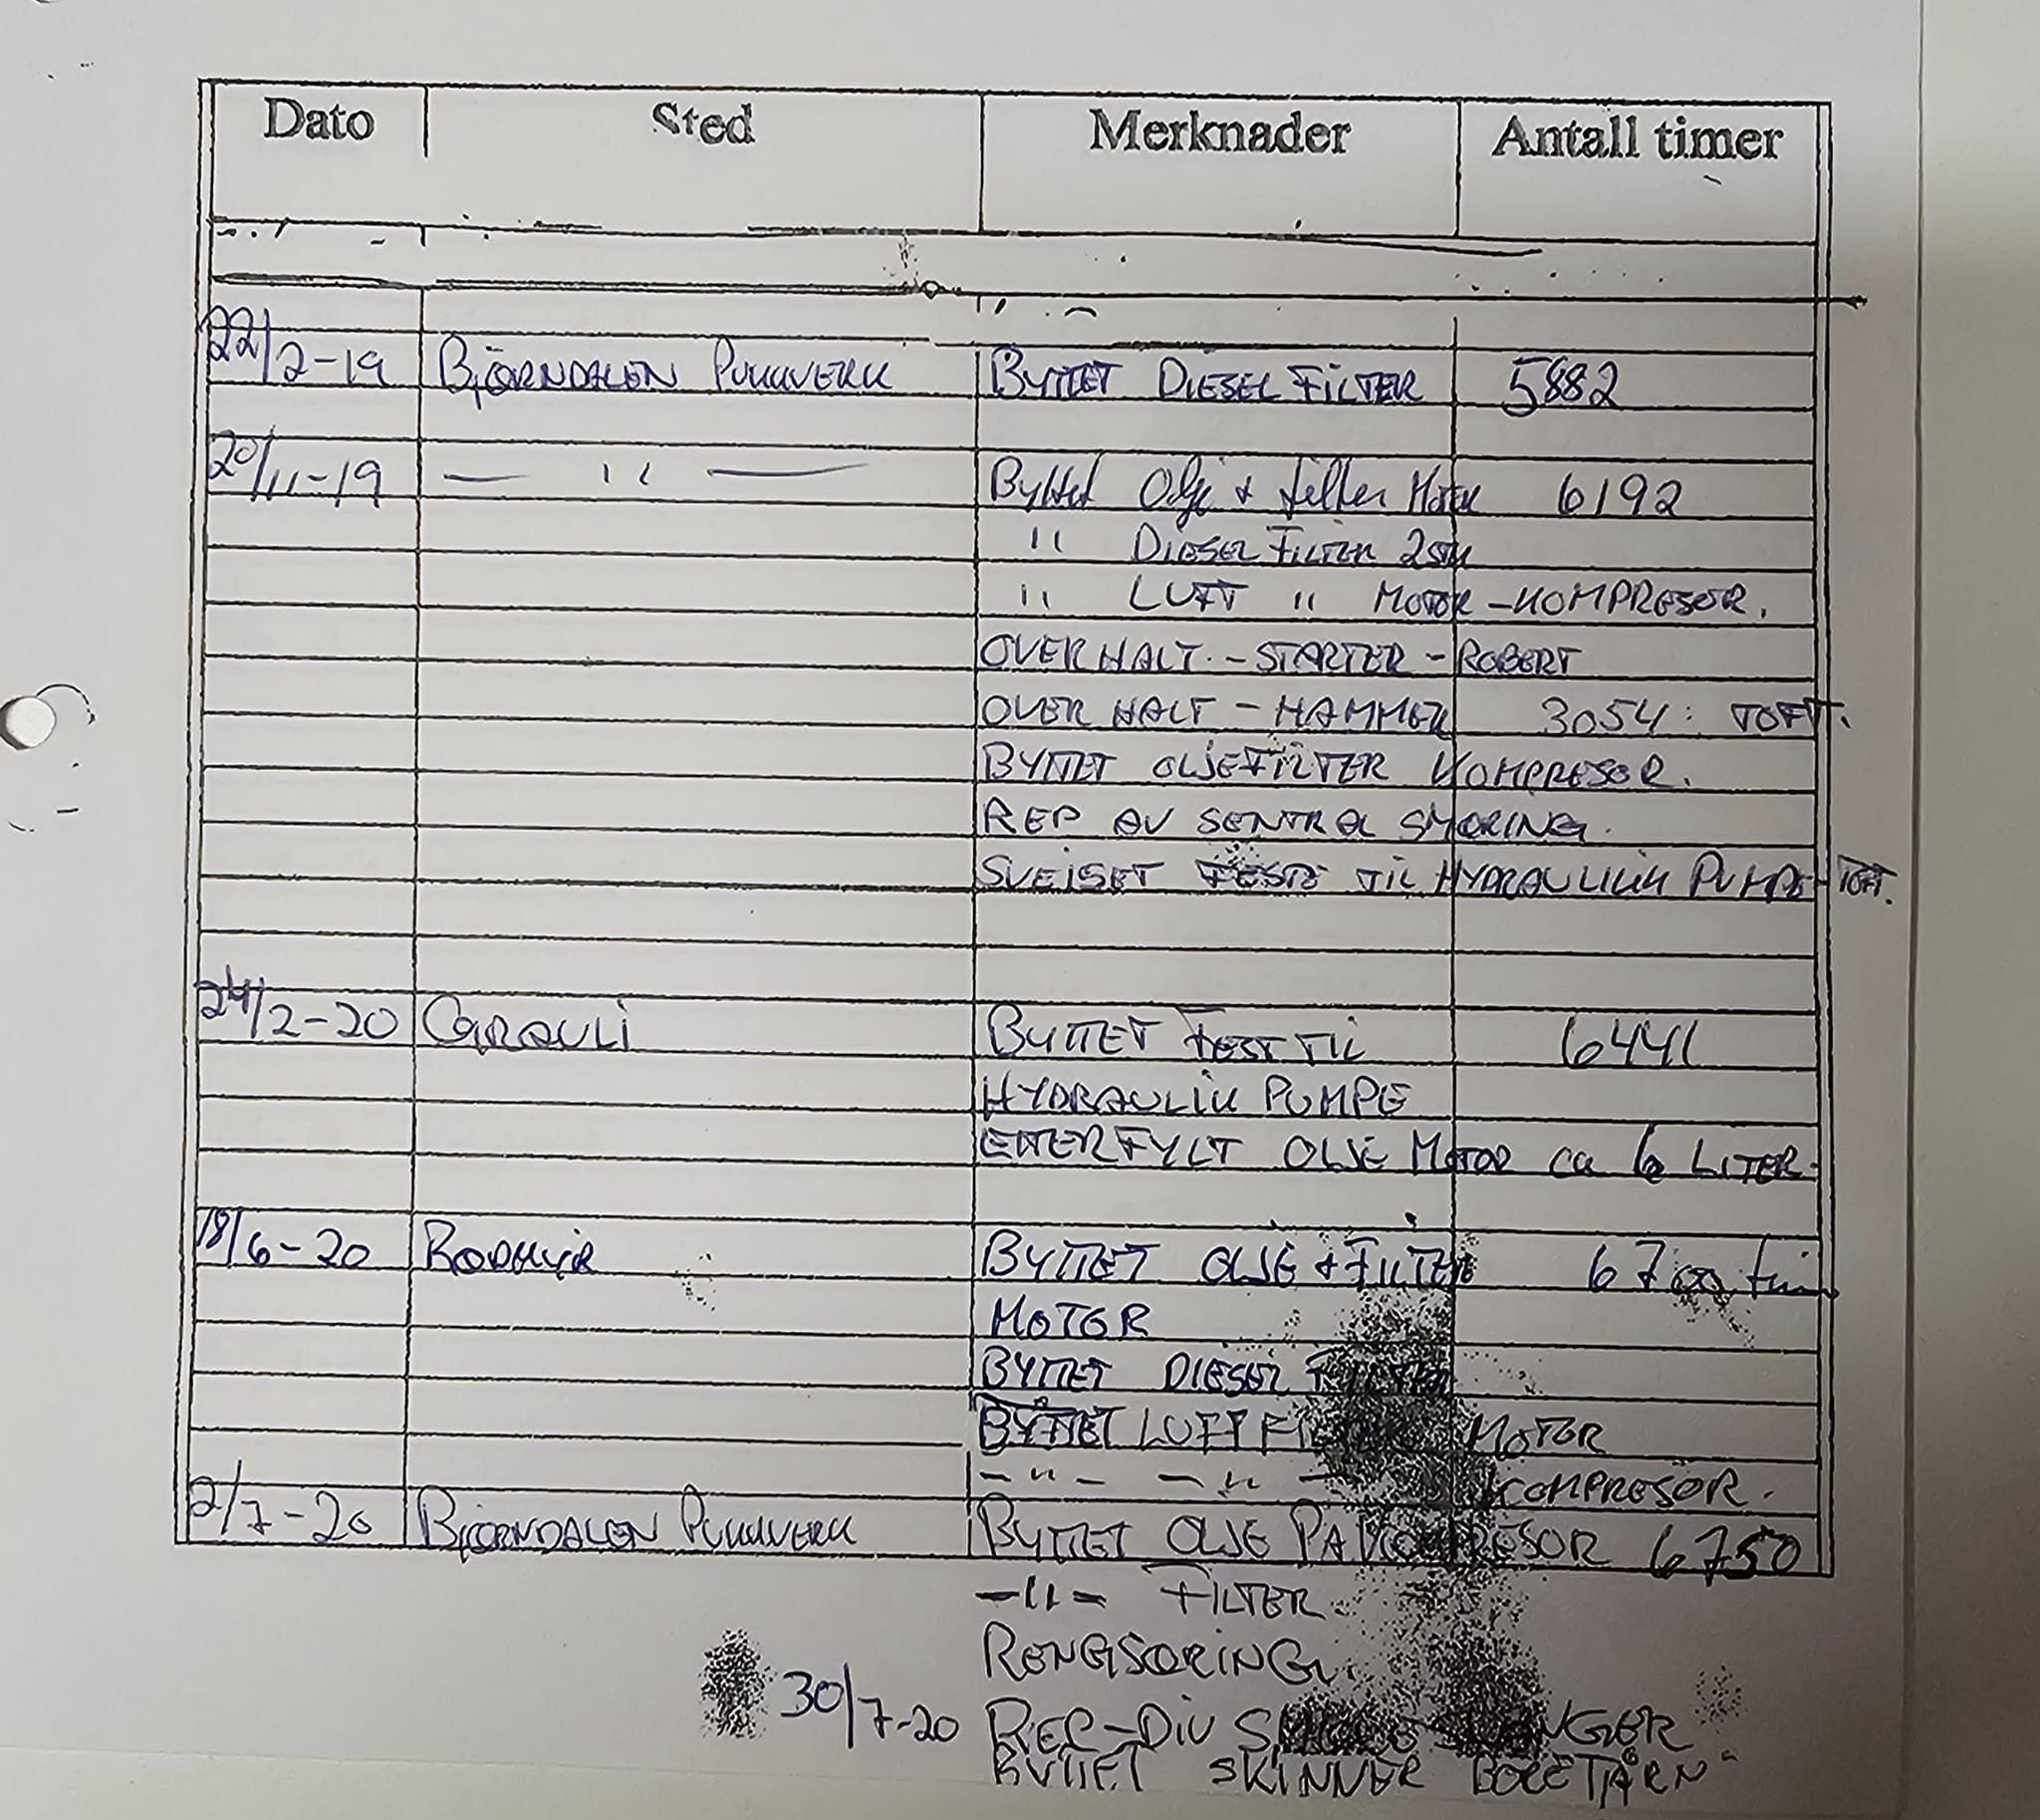 Dato Sted Merknader Antall timer
22/2-19 BJØRNDALEN PUKKVERK BYTTET DIESEL FILTER 5882
20/11-19 — " — Byttet Olje + filter Motor 6192
" DIESEL FILTER 2stk
" LUFT " MOTOR - KOMPRESOR.
OVERHALT - STARTER - ROBERT
OVERHALT - HAMMER 3054: TOFT.
BYTTET OLJEFILTER KOMPRESOR.
REP AV SENTRAL SMØRING.
SVEISET FESTE TIL HYDRAULIKK PUMPE - TOFT.
24/2-20 GRAULI BYTTET FESTE TIL 6441
HYDRAULIK PUMPE
ETTERFYLT OLJE MOTOR ca 6 LITER.
18/6-20 BYTTET OLJE + FILTER 6700 tim
MOTOR
BYTTET DIESEL FILTER
BYTTET LUFTFILTER MOTOR
- " - - " - KOMPRESOR.
2/7-20 BJØRNDALEN PUKKVERK BYTTET OLJE PÅ KOMPRESOR 6750
- " - FILTER
RENGJØRING.
30/7-20 REP-DIV
BYTTET SKINNER BORETÅRN